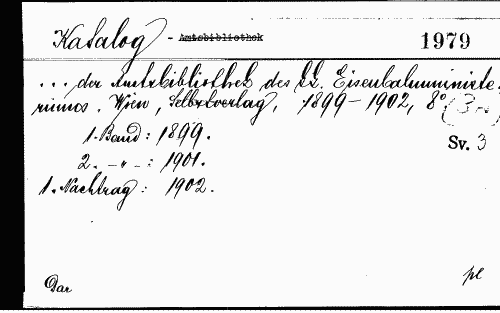 Katalog - Amtsbibliothek 1979
... der Amtsbibliothek des k.k. Eisenbahnministe-
riums. Wien, Selbstverlag, 1899-1902, 8° (3
1. Band: 1899. Sv. 3
2. -"- : 1901.
1. Nachtrag: 1902.
Dar pl